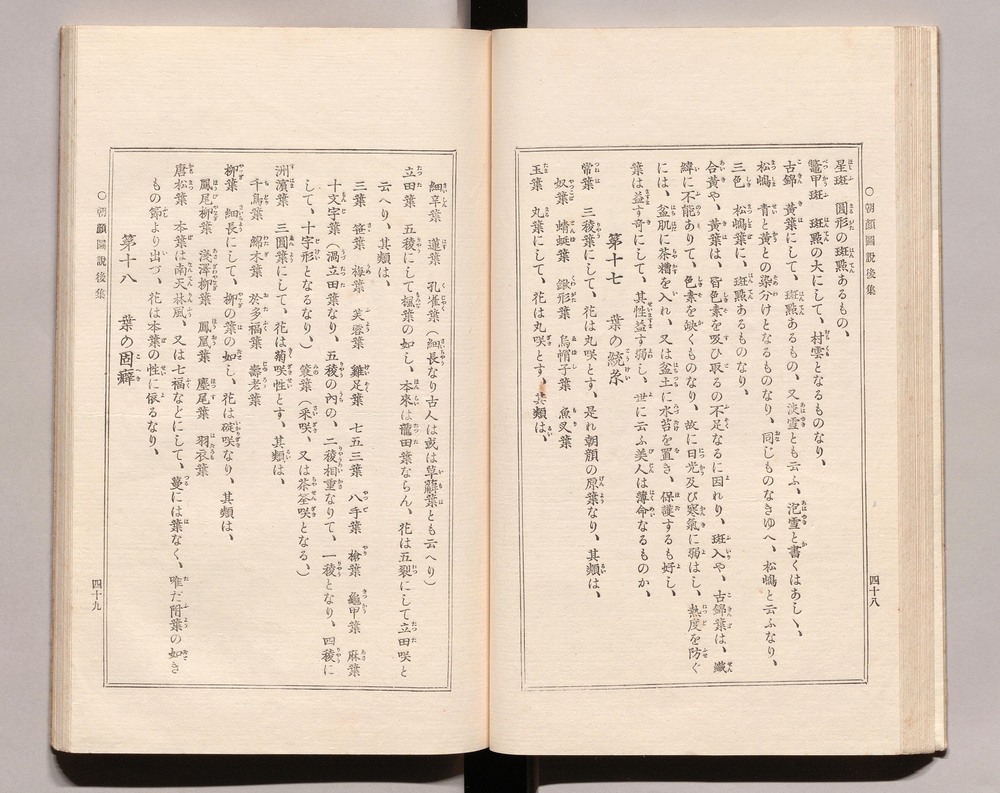 ○朝顏圖說後集
四十八
星斑　圓形の斑點あるもの、
鼈甲斑　斑點の大にして、村雲となるものなり、
古錦　黃葉にして、斑點あるもの、又淡雪とも云ふ、泡雪と書くはあし丶、
松嶋　青と黃との染分けとなるものなり、同じものなきゆへ、松嶋と云ふなり、
三色　松嶋葉に、斑點あるものなり、
合黃や、黃葉は、皆色素を吸ひ取るの不足なるに因れり、斑入や、古錦葉は、纖
緯に不能ありて、色素を缺くものなり、故に日光及び寒氣に弱はし、熱度を防ぐ
には、盆肌に茶糟を入れ、又は盆土に水苔を置き、保護するも好し、
葉は益す奇にして、其性益す弱し、世に云ふ美人は薄命なるものか、
第十七　葉の統系
常葉　三稜葉にして、花は丸咲とす、是れ朝顏の原葉なり、其類は、
奴葉　蜻蜓葉　鍬形葉　烏帽子葉　魚叉葉
玉葉　丸葉にして、花は丸咲とす、其類は、
細辛葉　蓮葉　孔雀葉（細長なり古人は或は草龗葉とも云へり）
立田葉　五稜にして楓葉の如し、本來は龍田葉ならん、花は五裂にして立田咲と
云へり、其類は、
三葉　笹葉　梅葉　芙蓉葉　雞足葉　七五三葉　八手葉　槍葉　龜甲葉　麻葉
十文字葉（渦立田葉なり、五稜の內の、二稜相重なりて、一稜となり、四稜に
して、十字形となるなり、）簑葉（采咲、又は茶筌咲となる、）
洲濱葉　三圓葉にして、花は菊咲性とす、其類は、
千鳥葉　鄒木葉　於多福葉　壽老葉
柳葉　細長にして、柳の葉の如し、花は碇咲なり、其類は、
鳳尾柳葉　淺澤柳葉　鳳凰葉　塵尾葉　羽衣葉
唐松葉　本葉は南天林風、又は七福などにして、蔓には葉なく、唯だ附葉の如き
もの節より出づ、花は本葉の性に依るなり、
第十八　葉の固癖
○朝顏圖說後集
四十九